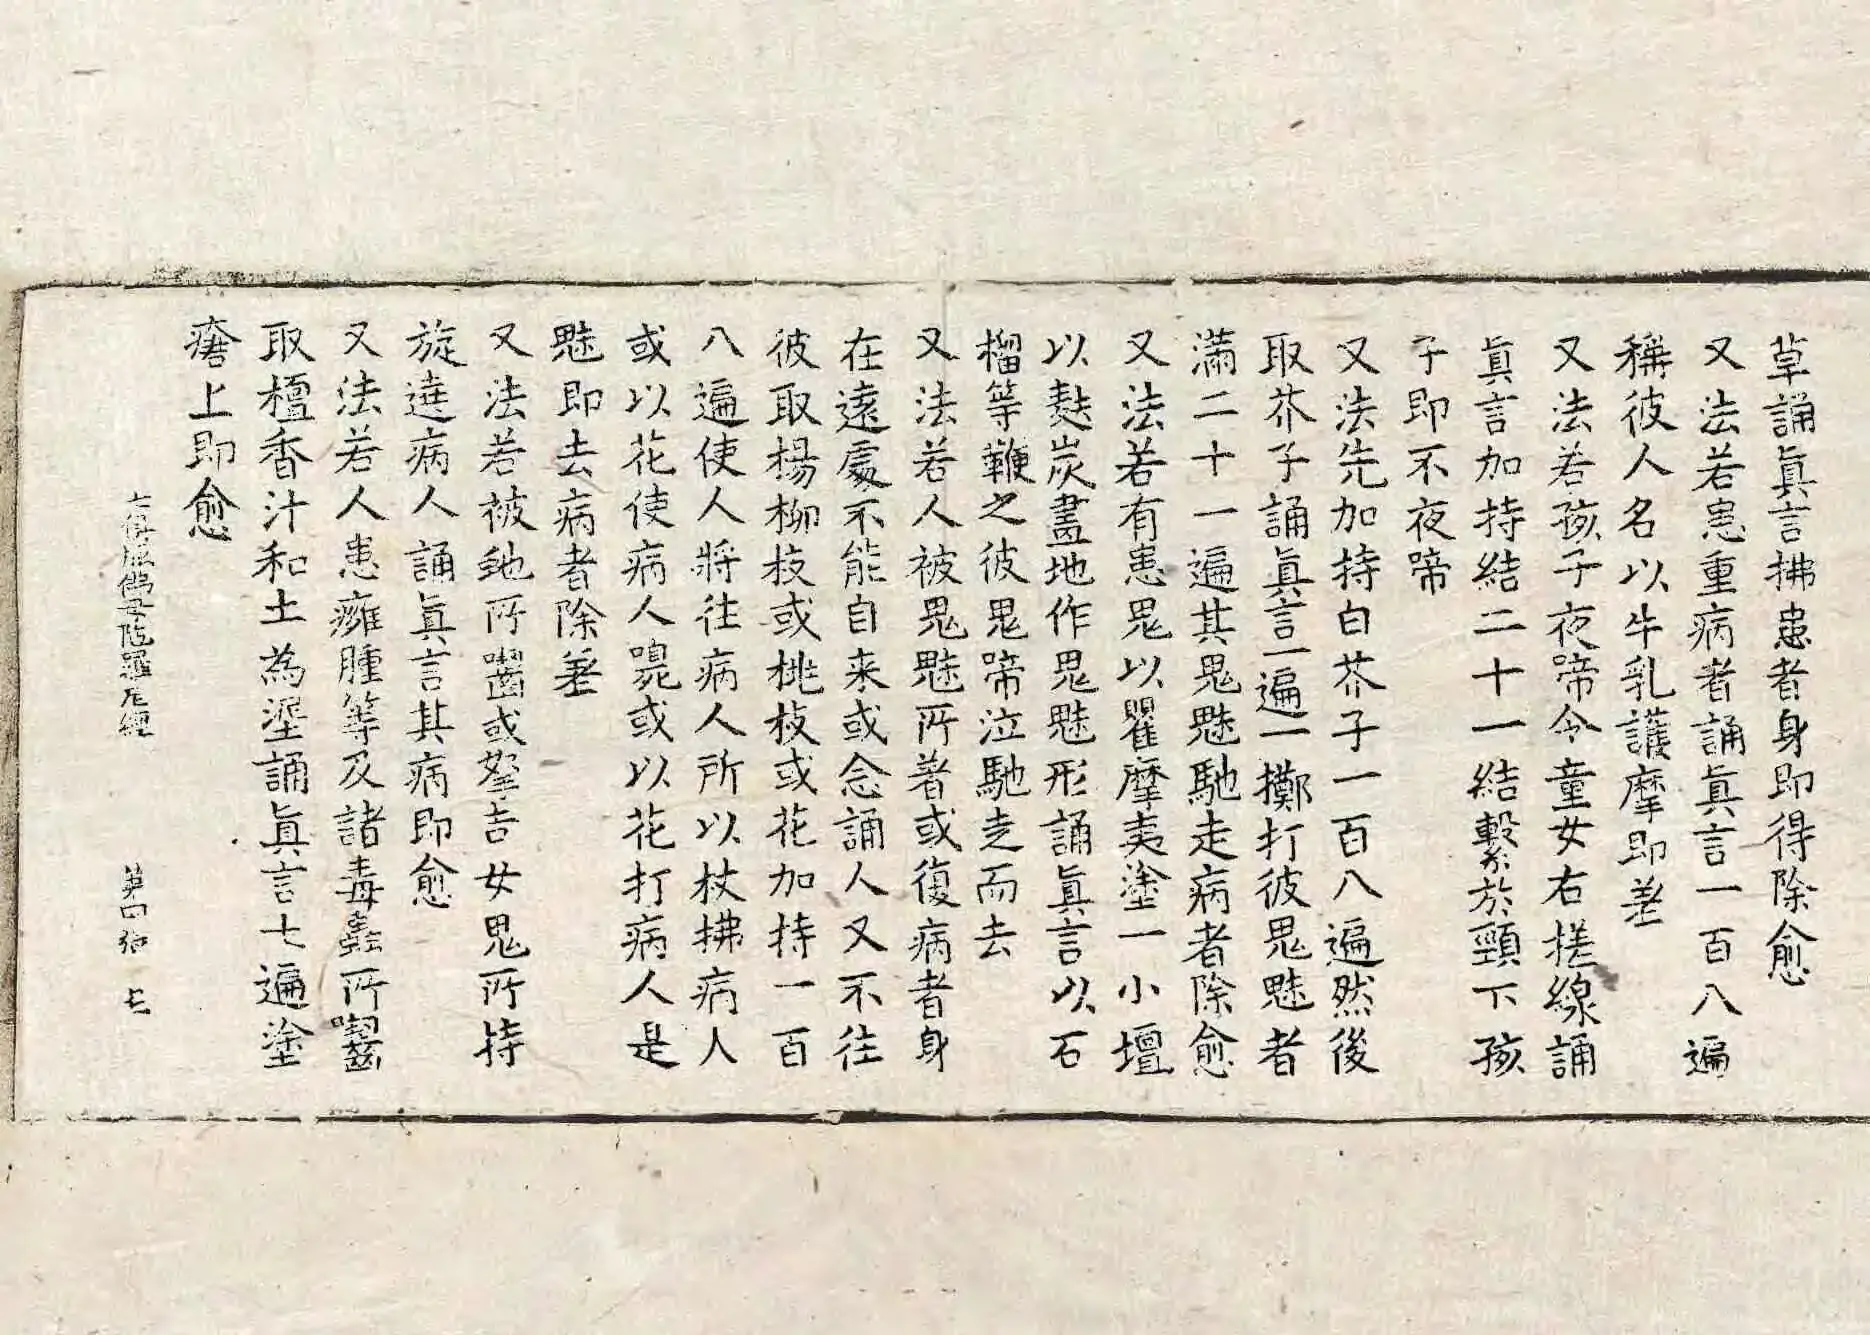 草誦眞言拂患者身即得除愈
又法若患重病者誦眞言一百八遍
稱彼人名以牛乳護摩即差
又法若孩子夜啼令童女右搓線誦
眞言加持結二十一結繫於頸下孩
子即不夜啼
又法先加持白芥子一百八遍然後
取芥子誦眞言一遍一擲打彼鬼魅者
滿二十一遍其鬼魅馳走病者除愈
又法若有患鬼以瞿摩夷塗一小壇
以麩炭畫地作鬼魅形誦眞言以石
榴等鞭之彼鬼啼泣馳走而去
又法若人被鬼魅所著或復病者身
在遠處不能自来或念誦人又不往
彼取楊柳枝或桃枝或花加持一百
八遍使人將往病人所以杖拂病人
或以花使病人嗅或以花打病人是
魅即去病者除差
又法若被虵所嚙或拏吉女鬼所持
旋遶病人誦眞言其病即愈
又法若人患癰腫等及諸毒蟲所齧
取檀香汁和土為埿誦眞言七遍塗
瘡上即愈
七俱胝佛母陀羅尼經 第四張 七